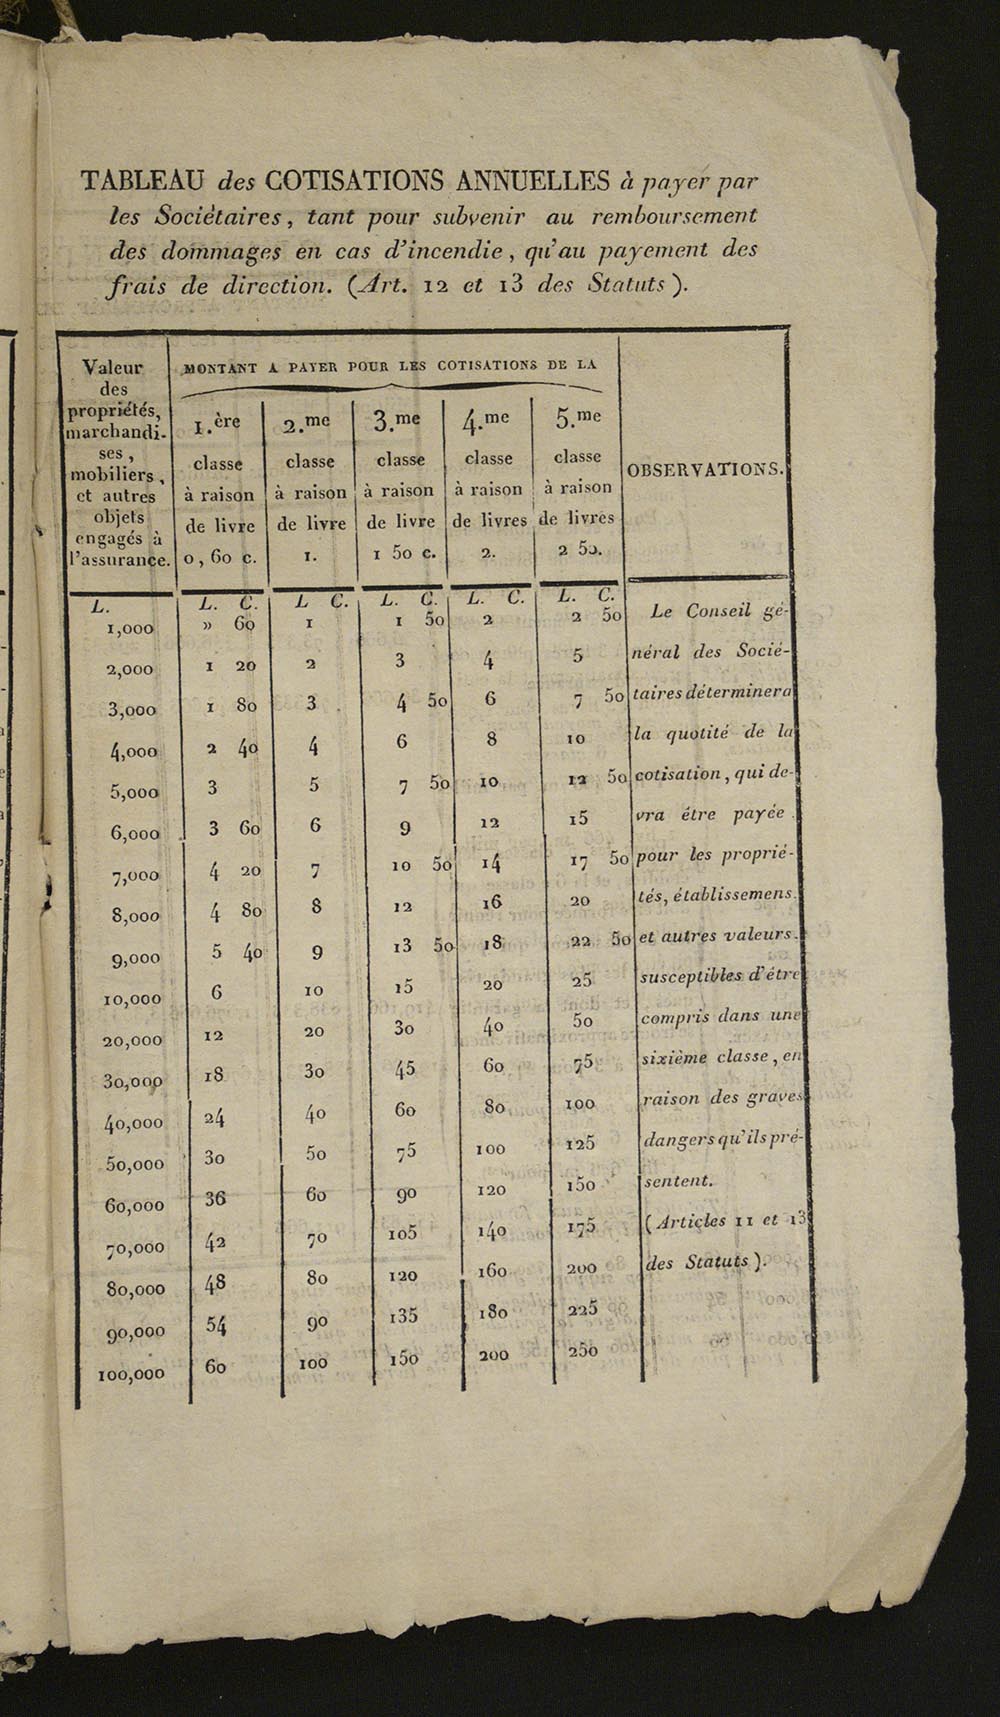 TABLEAU des COTISATIONS ANNUELLES à payer par
les Sociétaires, tant pour subvenir au remboursement
des dommages en cas d'incendie, qu'au payement des
frais de direction. (Art. 12 et 13 des Statuts).
Valeur
des
propriétés,
marchandi-
ses,
mobiliers,
et autres
objets
engagés à
l'assurance.
MONTANT A PAYER POUR LES COTISATIONS DE LA
1.ère
classe
à raison
de livre
0, 60 c.
2.me
classe
à raison
de livre
1.
3.me
classe
à raison
de livre
1 50 c.
4.me
classe
à raison
de livres
2.
5.me
classe
à raison
de livres
2 50.
OBSERVATIONS.
L. L. C. L C. L. C. L. C. L. C.
1,000 » 60 1 1 50 2 2 50
2,000 1 20 2 3 4 5
3,000 1 80 3 4 50 6 7 50
4,000 2 40 4 6 8 10
5,000 3 5 7 50 10 12 50
6,000 3 60 6 9 12 15
7,000 4 20 7 10 50 14 17 50
8,000 4 80 8 12 16 20
9,000 5 40 9 13 50 18 22 50
10,000 6 10 15 20 25
20,000 12 20 30 40 50
30,000 18 30 45 60 75
40,000 24 40 60 80 100
50,000 30 50 75 100 125
60,000 36 60 90 120 150
70,000 42 70 105 140 175
80,000 48 80 120 160 200
90,000 54 90 135 180 225
100,000 60 100 150 200 250
Le Conseil gé-
néral des Socié-
taires déterminera
la quotité de la
cotisation, qui de-
vra être payée
pour les proprié-
tés, établissemens
et autres valeurs
susceptibles d'être
compris dans une
sixième classe, en
raison des graves
dangers qu'ils pré-
sentent.
(Articles 11 et 13
des Statuts).